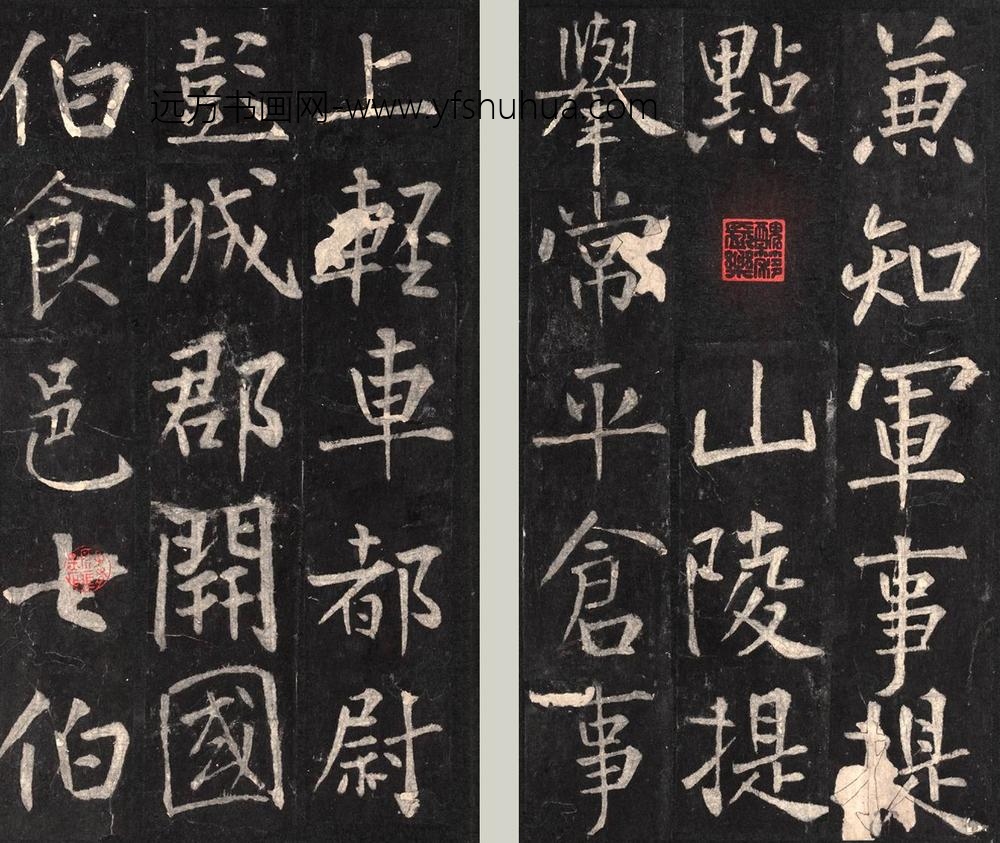 兼知軍事提
點山陵提
舉常平倉事
上輕車都尉
彭城郡開國
伯食邑七伯
远方书画网-www.yfshuhua.com